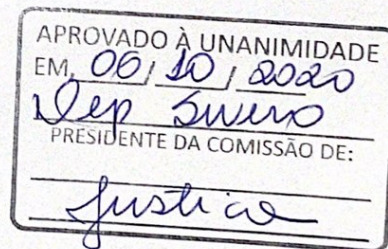 APROVADO À UNANIMIDADE
EM, 06/10/2020
Dep
PRESIDENTE DA COMISSÃO DE:
Justica